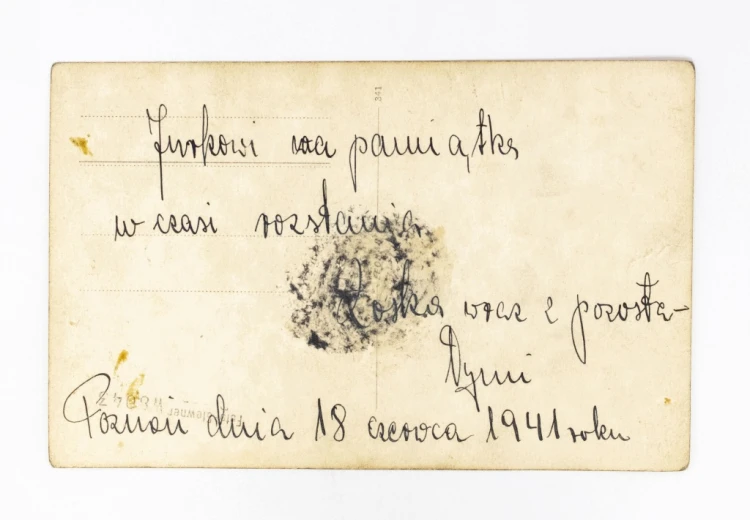 341
Jurkowi na pamiątkę
w czasi rozstania
Zośka wraz z pozosta-
łymi
Poznań dnia 18 czerwca 1941 roku